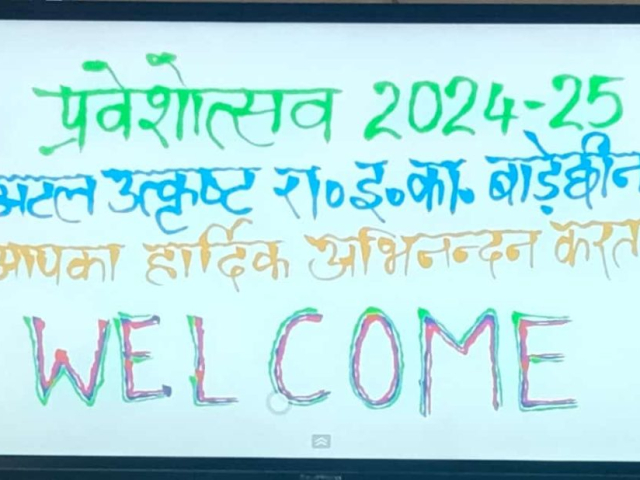 प्रवेशोत्सव 2024-25
अटल उत्कृष्ट रा०इ०का० बाड़ेछीना
आपका हार्दिक अभिनन्दन करता
WELCOME